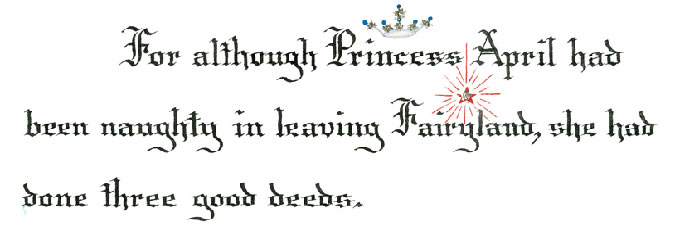 For although Princess April had
been naughty in leaving Fairyland, she had
done three good deeds.